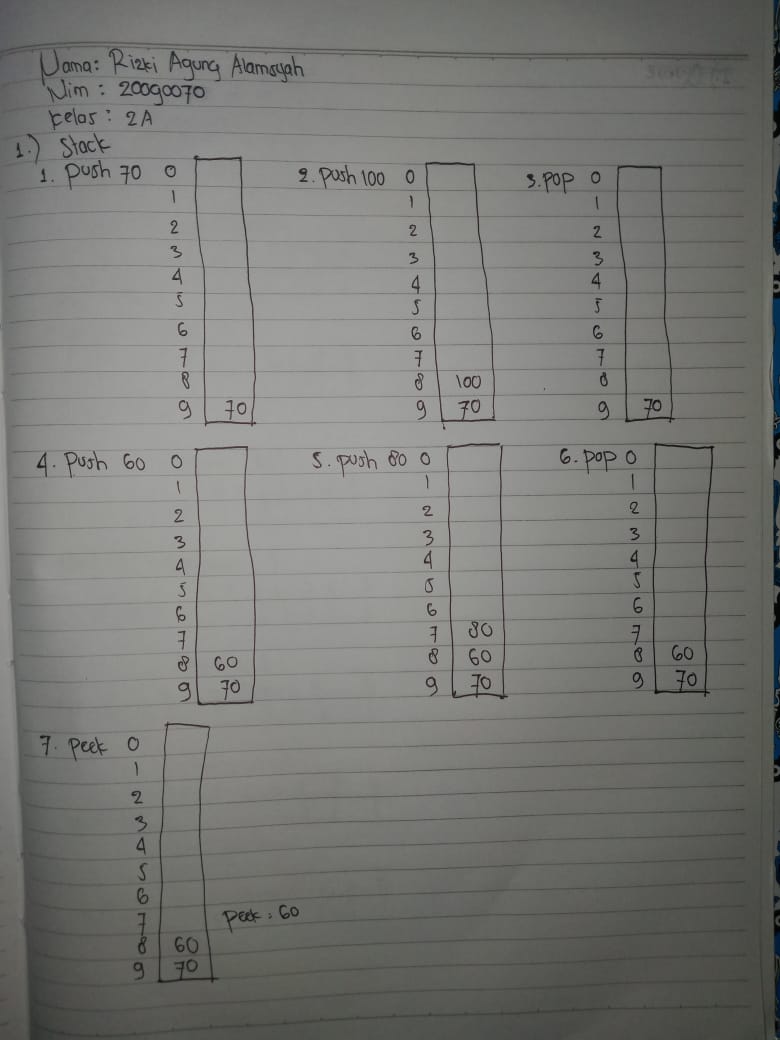 Nama: Rizki Agung Alamsyah
Nim : 20090070
Kelas : 2A
1.) Stack
1. push 70 0
1
2
3
4
5
6
7
8
9 70
2. push 100 0
1
2
3
4
5
6
7
8 100
9 70
3. pop 0
1
2
3
4
5
6
7
8
9 70
4. push 60 0
1
2
3
4
5
6
7
8 60
9 70
5. push 80 0
1
2
3
4
5
6
7 80
8 60
9 70
6. pop 0
1
2
3
4
5
6
7
8 60
9 70
7. peek 0
1
2
3
4
5
6
7 peek : 60
8 60
9 70